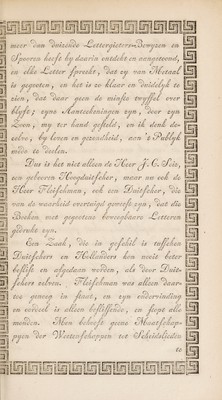 meer dan duizende Lettergieters-Bewyzen en
Spooren heeft hy daarin ontdekt en aangetoond,
en elke Letter spreekt, dat zy van Metaal
is gegooten, en het is zo klaar en duidelyk te
zien, dat daar geen de minste twyffel over
blyft; zyne Aantekeningen zyn, door zyn
Zoon, my ter hand gesteld, en ik denk de-
zelve, by leven en gezondheid, aan 't Publyk
mede te deelen.
Dus is het niet alleen de Heer J. C. Seiz,
een gebooren Hoogduitscher, maar nu ook de
Heer Fleischman, ook een Duitscher, die
van de waarheid overtuigd geweest zyn, dat die
Boeken met gegootene beweegbaare Letteren
gedrukt zyn.
Een Zaak, die in geschil is tusschen
Duitschers en Hollanders kan nooit beter
beslist en afgedaan worden, als door Duit-
schers zelven. Fleischman was alleen daar-
toe genoeg in staat, en zyn ondervinding
en oordeel is alleen beslissende, en stopt alle
monden. Men behoeft geene Maatschap-
pyen der Weetenschappen tot Scheidslieden
te